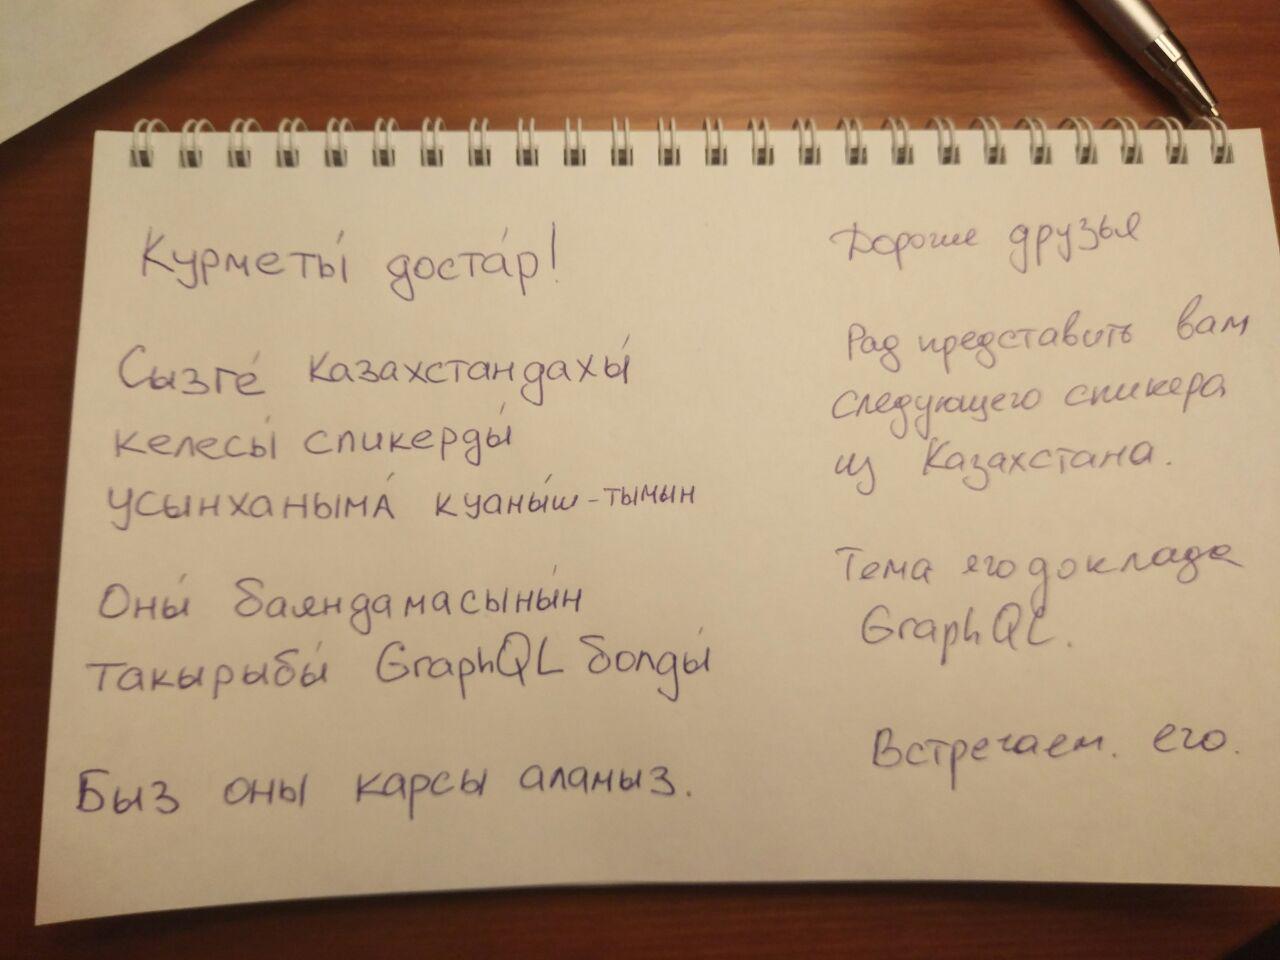 Курметы́ доста́р!
Сызге́ казахстандахы́
келесы́ спикерды́
усынханыма́ куаны́ш-тымын
Оны́ баяндамасыны́н
такырыбы́ GraphQL болды́
Быз оны карсы аламыз.
Дорогие друзья
Рад представить вам
следующего спикера
из Казахстана.
Тема его доклада
GraphQL.
Встречаем. его.